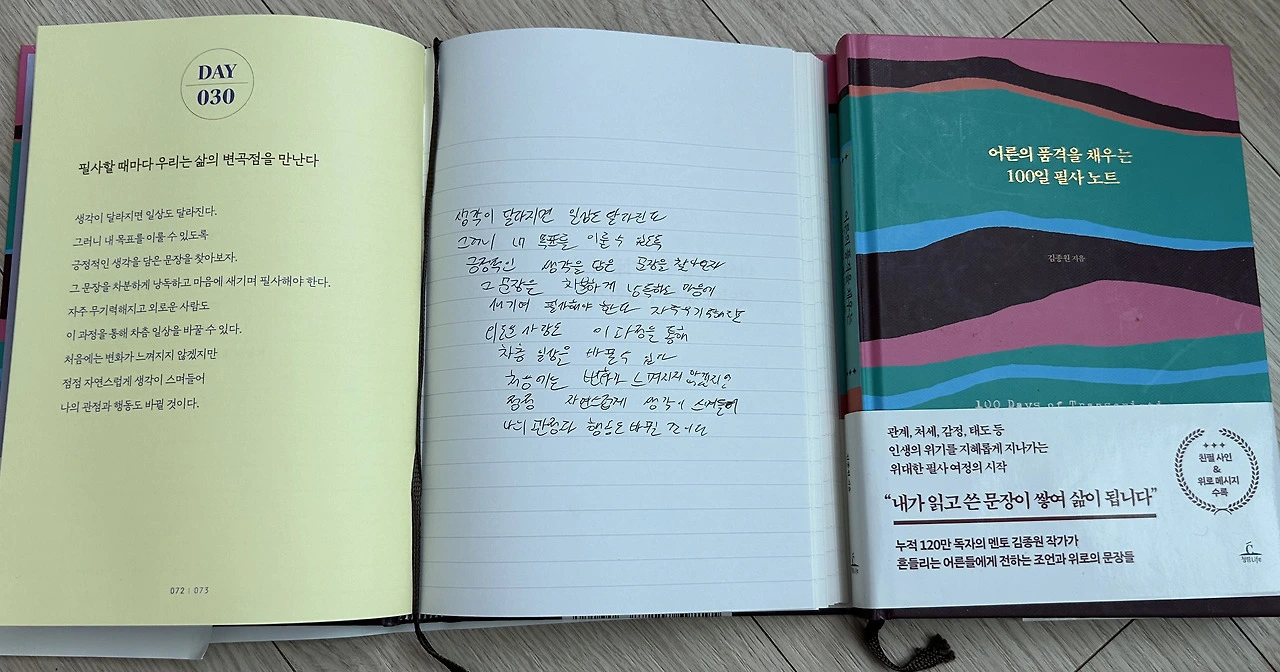 DAY
030
필사할 때마다 우리는 삶의 변곡점을 만난다
생각이 달라지면 일상도 달라진다.
그러니 내 목표를 이룰 수 있도록
긍정적인 생각을 담은 문장을 찾아보자.
그 문장을 차분하게 낭독하고 마음에 새기며 필사해야 한다.
자주 무기력해지고 외로운 사람도
이 과정을 통해 차츰 일상을 바꿀 수 있다.
처음에는 변화가 느껴지지 않겠지만
점점 자연스럽게 생각이 스며들어
나의 관점과 행동도 바뀔 것이다.
072 | 073
생각이 달라지면 일상도 달라진다
그러니 내 목표를 이룰 수 있도록
긍정적인 생각을 담은 문장을 찾아보자
그 문장을 차분하게 낭독하고 마음에
새기며 필사해야 한다 자주
사람도 이 과정을 통해
차츰 일상을 바꿀 수 있다
처음에는 변화가 느껴지지 않겠지만
점점 자연스럽게 생각이 스며들어
나의 관점과 행동도 바뀔 것이다
어른의 품격을 채우는
100일 필사 노트
김종원 지음
100 Days of
관계, 처세, 감정, 태도 등
인생의 위기를 지혜롭게 지나가는
위대한 필사 여정의 시작
“내가 읽고 쓴 문장이 쌓여 삶이 됩니다”
누적 120만 독자의 멘토 김종원 작가가
흔들리는 어른들에게 전하는 조언과 위로의 문장들
친필 사인
&
위로 메시지
수록
청림Life
어른의 품격을 채우는